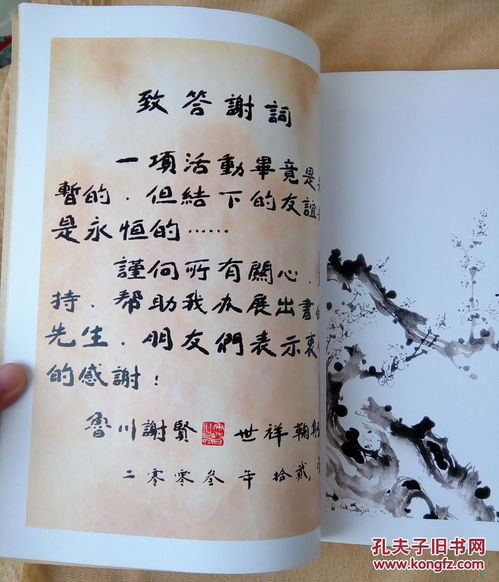 致答謝詞
一項活動畢竟是
暫的．但結下的友誼
是永恒的……
謹向所有關心．
持．幫助我办展出書
先生．朋友們表示衷
的感謝！
魯川謝賢 世祥鞠躬
二零零叁年拾貳．
孔夫子旧书网
www.kongfz.com